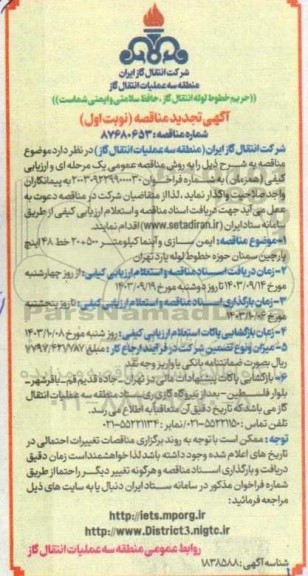 شرکت انتقال گاز ایران
منطقه سه عملیات انتقال گاز
((حریم خطوط لوله انتقال گاز، حافظ سلامتی و ایمنی شماست))
آگهی تجدید مناقصه (نوبت اول)
شماره مناقصه: ۸۷۶۸۰۶۵۳
شرکت انتقال گاز ایران (منطقه سه عملیات انتقال گاز) در نظر دارد موضوع
مناقصه به شرح ذیل را به روش مناقصه عمومی یک مرحله ای و ارزیابی
کیفی (همزمان) به شماره فراخوان ۲۰۰۳۰۹۲۲۹۹۰۰۰۰۳۰ به پیمانکاران
واجد صلاحیت واگذار نماید. لذا از متقاضیان شرکت در مناقصه دعوت به
عمل می آید جهت دریافت اسناد مناقصه و استعلام ارزیابی کیفی از طریق
سامانه ستاد ایران (www.setadiran.ir) اقدام نمایند.
۱- موضوع مناقصه: ایمن سازی و آپنما کیلومتر ۵۰۰ تا ۲۰۰ خط ۴۸ اینچ
پارچین سمنان حوزه خطوط لوله پارد تهران
۲- زمان دریافت اسناد مناقصه و استعلام ارزیابی کیفی: از روز چهارشنبه
مورخ ۱۴۰۳/۰۹/۱۴ تا روز دوشنبه مورخ ۱۴۰۳/۰۹/۱۹
۳- زمان بارگذاری اسناد مناقصه و استعلام ارزیابی کیفی: تا روز پنجشنبه
مورخ ۱۴۰۳/۱۰/۰۶
۴- زمان بازگشایی پاکات استعلام ارزیابی کیفی: روز شنبه مورخ ۱۴۰۳/۱۰/۰۸
۵- میزان ونوع تضمین شرکت در فرآیند ارجاع کار: مبلغ ۷٬۷۹۷٬۶۲۱٬۷۸۷
ریال بصورت ضمانتنامه بانکی یا واریز وجه نقد
۶- بازگشایی پاکات پیشنهادات مالی در تهران - جاده قدیم قم- باقرشهر-
بلوار فلسطین- بعداز نیروگاه گازی ری ستاد منطقه سه عملیات انتقال
گاز می باشد که تاریخ دقیق آن متعاقبا به اطلاع می رسد.
تلفن تماس: ۵۵۲۲۱۱۵۰-۰۲۱ نمابر: ۵۵۲۲۱۱۳۴-۰۲۱
توجه: ممکن است با توجه به روند برگزاری مناقصات تغییرات احتمالی در
تاریخ های اعلام شده وجود داشته باشد لذا خواهشمند است زمان دقیق
دریافت و بارگذاری اسناد مناقصه و هرگونه تغییر دیگر را حتما از طریق
شماره فراخوان مذکور در سامانه ستاد ایران دنبال یا به سایت های ذیل
مراجعه فرمائید:
http://iets.mporg.ir
http://www.District3.nigtc.ir
روابط عمومی منطقه سه عملیات انتقال گاز
شناسه آگهی: ۱۸۳۸۵۸۸